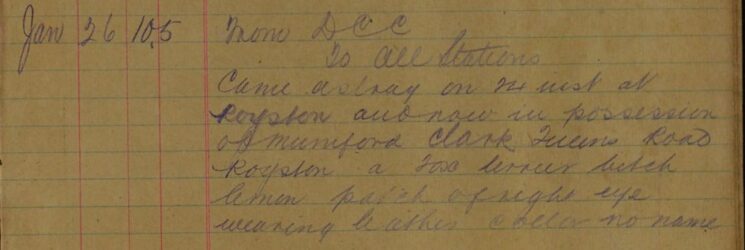 Jan 26 10.5 From D C C
To All Stations
Came astray on 24 inst at
Royston and now in possession
of Mumford Clark Queens Road
Royston a Fox terrier bitch
lemon patch of right eye
wearing leather collar no name